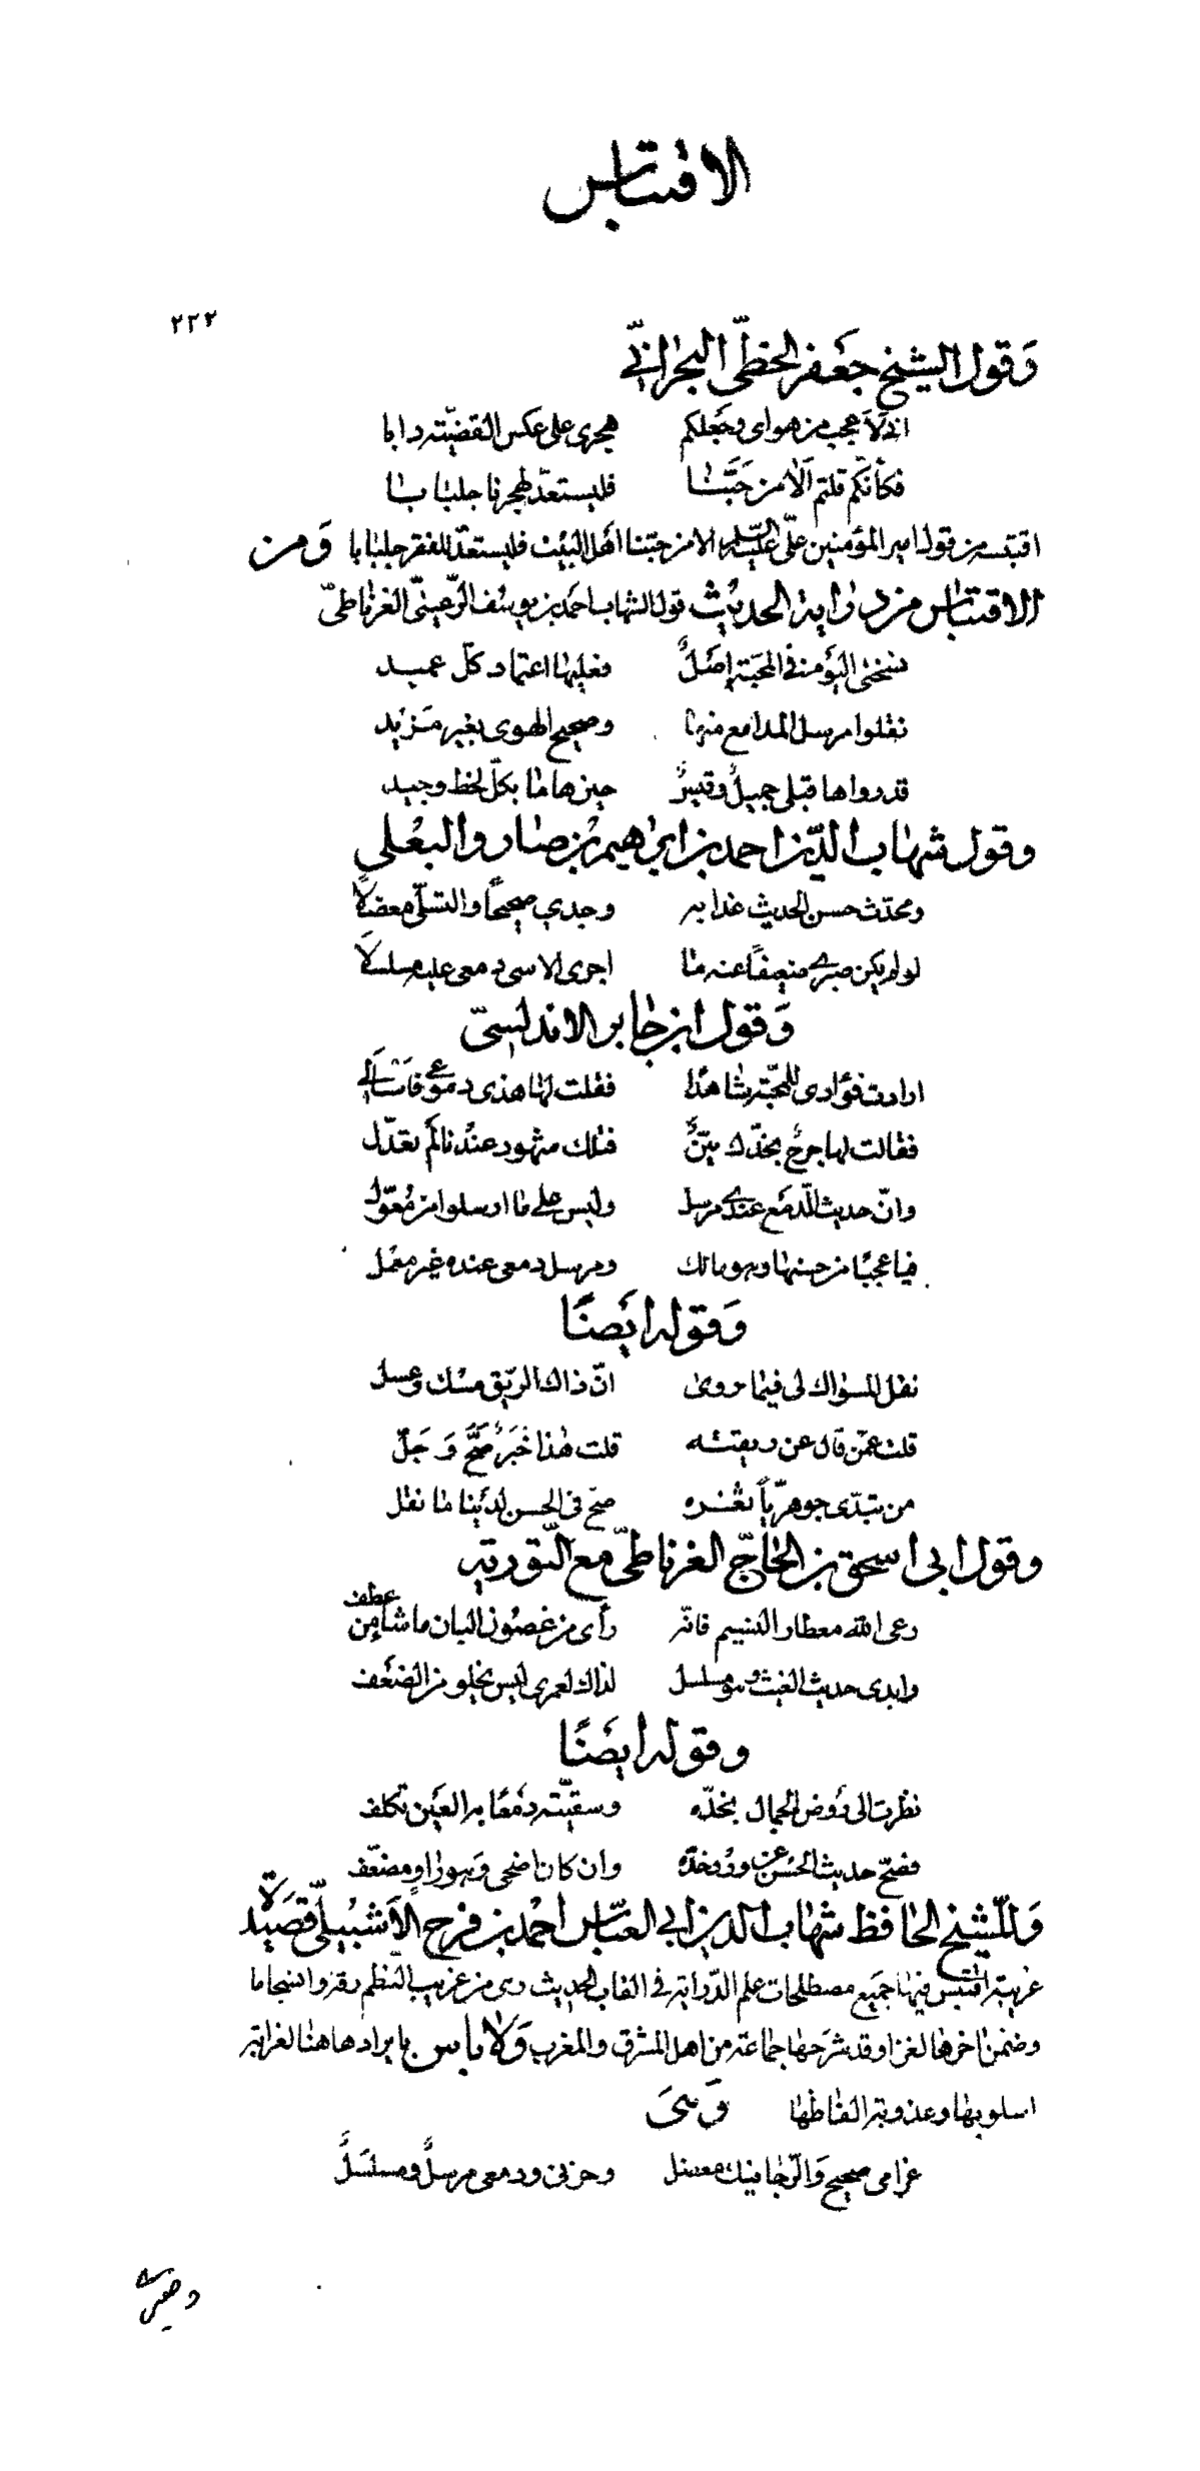 الاقتباس
٢٢٢
وَقول الشيخ جَعفر الخطّى البحرانيّ
انى لَاَعجب من هواى وجَعلكم هجرى على عكس القضيّة دابا
فكأنّكم قلتم اَلا من حَبَّنا فليستعدّ لهجرنا جلبابا
اقتبسه من قول امير المؤمنين علىّ عليه السلم الا من حبّنا اهل البيت فليستعدّ للفقر جلبابا وَمن
الاقتباس من دراية الحديث قول الشهاب احمد بن يوسف الرّعينىّ الغرناطىّ
نسختى اليوم فى المحبّة اصلٌ فعليها اعتماد كلّ عميد
نقلوا مرسل المدامع منها وصحيح الهوى بغير مَزيد
قد رواها قبلى جميلٌ وقيسٌ حين هاما بكلّ لحظ وجيد
وقول شهاب الدّين احمد بن ابراهيم بن صارو البعلى
ومحدّث حسن الحديث غدا به وجدي صحيحًا والتسلّى معضلاً
لو لم يكن صبرى ضعيفًا عنه ما اجرى الاسى دمعى عليه مسلسلاَ
وَقول ابن جابر الاندلسىّ
ارادت فؤادى للمحبّة شاهدًا فقلت لها هذى دموعى فاسألى
فقالت لها جرحٌ بخدّك بيّنٌ فتلك شهود عندنا لم تعدّل
وانّ حديث الدّمع عندى مرسل وليس على ما ارسلوا من مُعوّل
فيا عجبًا من حسنها وهو مالك ومرسل دمعى عنده غير معْمل
وَقوله ايضًا
نقل المسواك لى فيما روى انّ ذاك الرّيق مسْك وعسل
قلت عمّن قال عن ريقته قلت هٰذا خَبَرٌ صَحَّ وَجَلّ
من تبدّى جوهريًّا ثغره صحّ فى الحسن لدينا ما نقل
وقول ابى اسحق بن الحاجّ الغرناطىّ مع التّورية
رعى الله معطار النسيم فانّه رأى من غصون البان ما شاء من عطف
وابدى حديث الغيث وهو مسلسل لذاك لعمرى ليس يخلو من الضعف
وقوله ايضًا
نظرت الى رَوض الجمال بخدّه وسقيّته دَمعًا به العَين تكلف
فصحّ حديث الحسن عن ورد خدّه وان كان اضحى وَهو راوٍ مضعّف
وَللشّيخ الحافظ شهاب الدين ابى العبّاس احْمد بن فرح الاَشبيلىّ قصَيدة
غزيبة اقتبس فيها جَميع مصطلحات علم الدّراية فى القاب الحديث وهى من غريب النظم رقة وانسجاما
وضمن اخرها لغزا وقد شرَحها جماعة من اهل المشرق والمغرب وَلا باس بايرادها هنا لغرابة
اسلوبها وعذوبة الفاظها وَهىَ
غرامى صحيح وَالرّجا فيك معضل وحزنى ودمعى مرسلٌ ومسلسَلٌ